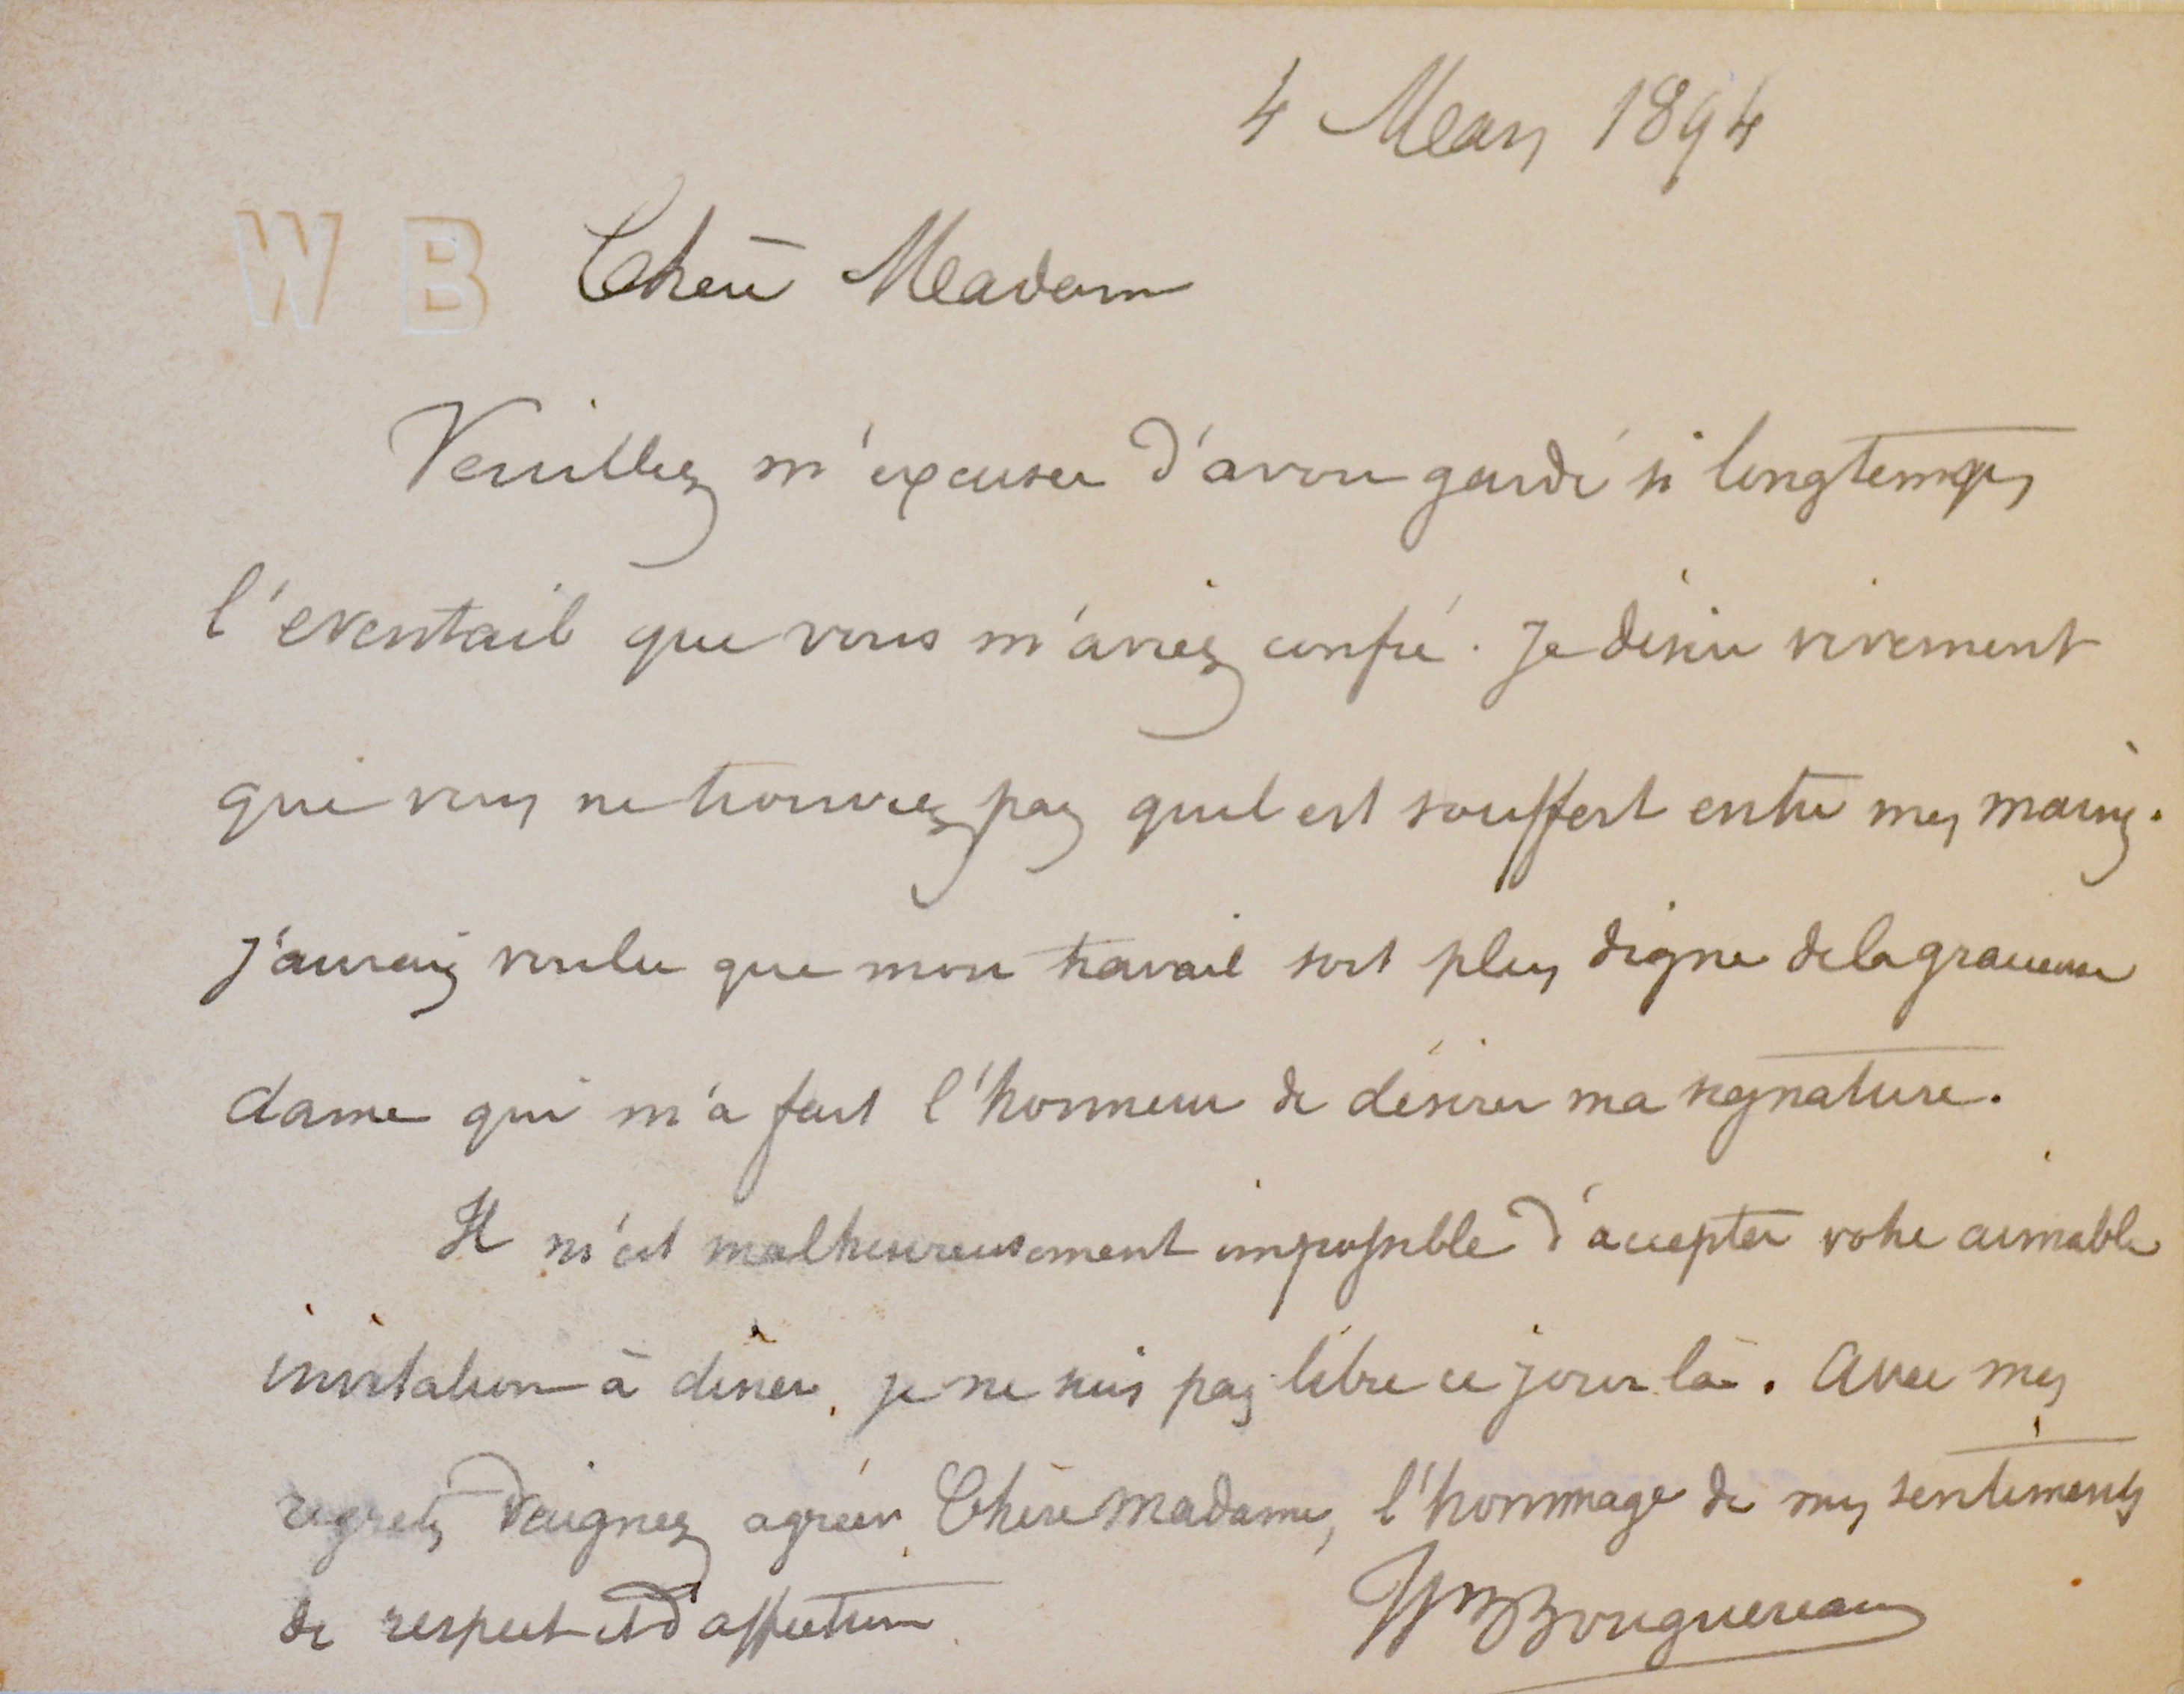 4 Mars 1894
W B Chère Madame
Veuillez m'excuser d'avoir gardé si longtemps
l'eventail que vous m'aviez confié. Je désire vivement
que vous ne trouviez pas quil est souffert entre mes mains.
J'aurais voulu que mon travail soit plus digne de la gracieuse
dame qui m'a fait l'honneur de désirer ma signature.
Il m'est malheureusement impossible d'accepter votre aimable
invitation à diner, je ne suis pas libre ce jour là. Avec mes
regrets, Daignez agréer Chère Madame, l'hommage de mes sentiments
de respect et d'affection
Wm Bouguereau